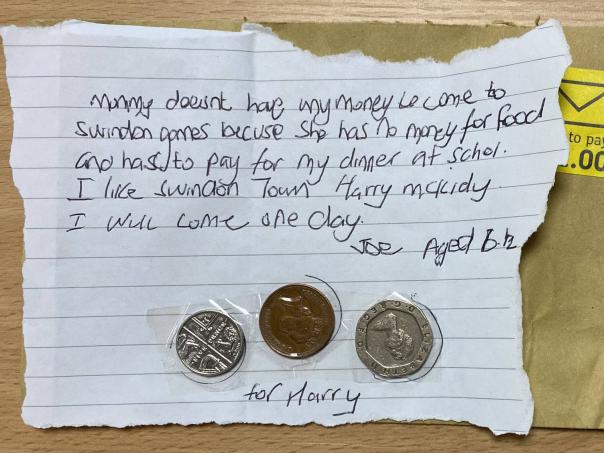 Mummy doesnt have any money to come to
swindon games becuse she has no money for food
and hass to pay for my dinner at schol.
I like swindon Town Harry mckidy.
I will come one day.
Joe Aged 6.½
for Harry
to pay
.00